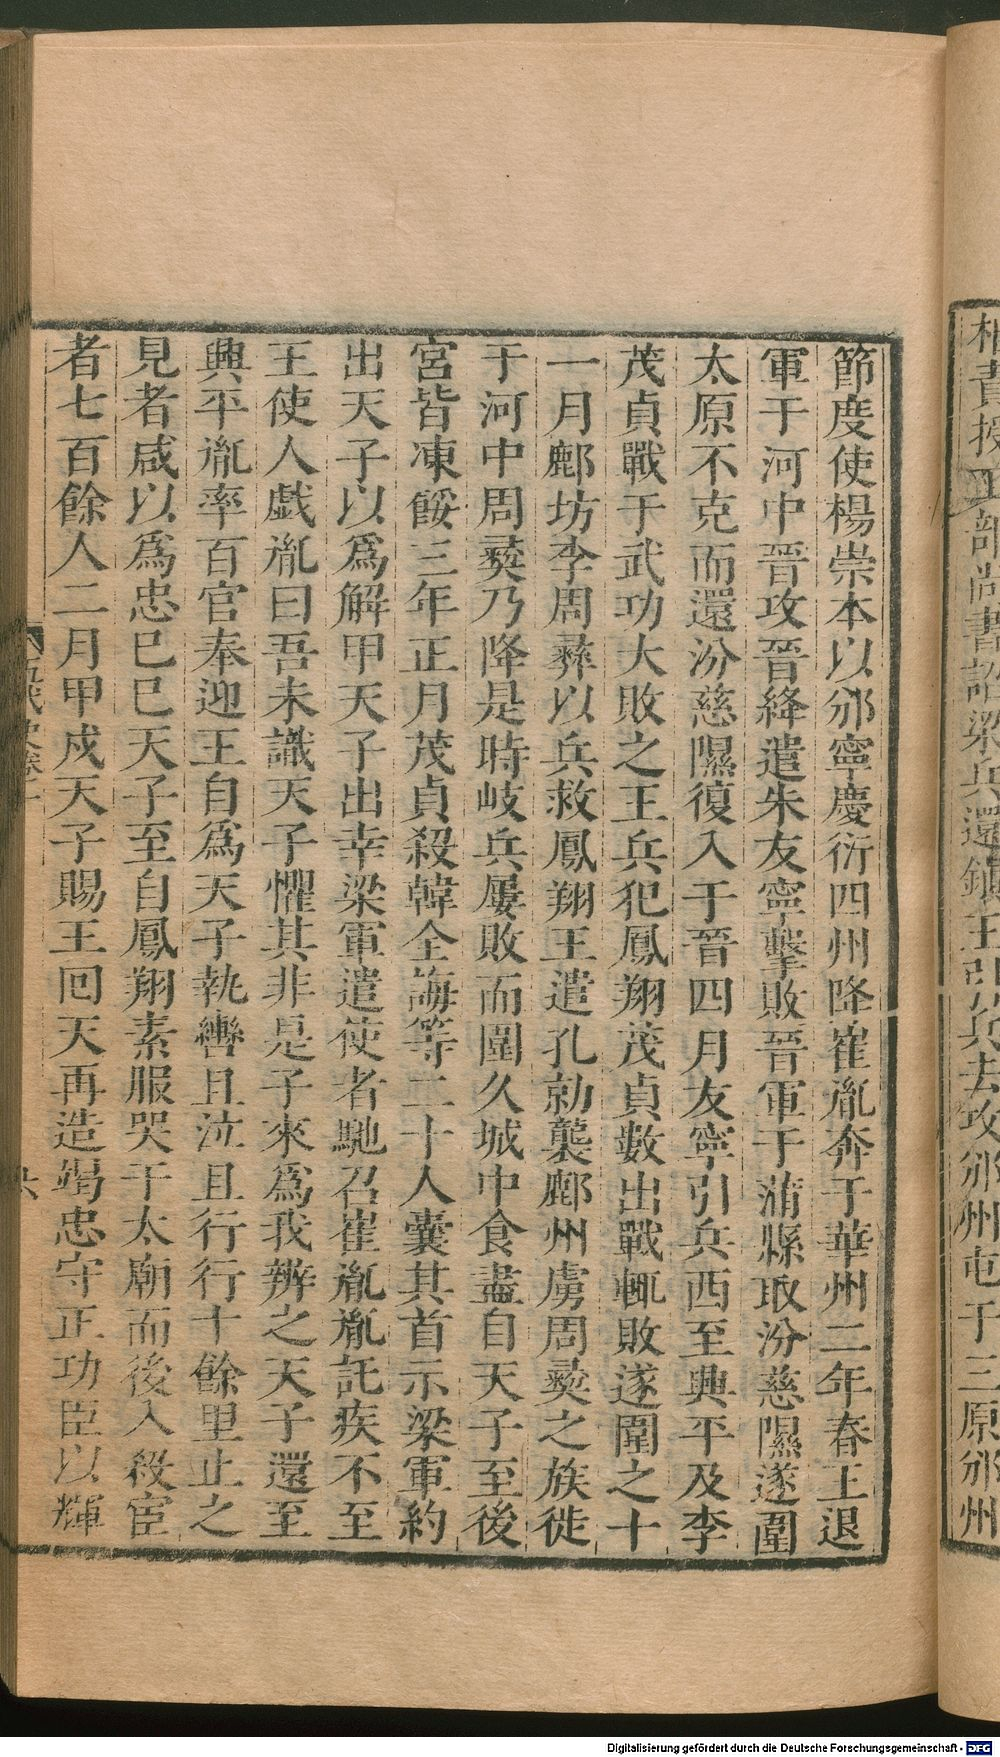 相責授工部尚書詔梁兵還鎮王引兵去攻邠州屯于三原邠州
節度使楊崇本以邠寧慶衍四州降崔胤奔于華州二年春王退
軍于河中晉攻晉絳遣朱友寧擊敗晉軍于蒲縣取汾慈隰遂圍
太原不克而還汾慈隰復入于晉四月友寧引兵西至興平及李
茂貞戰于武功大敗之王兵犯鳳翔茂貞數出戰輒敗遂圍之十
一月鄜坊李周彝以兵救鳳翔王遣孔勍襲鄜州虜周彝之族徙
于河中周彝乃降是時岐兵屢敗而圍久城中食盡自天子至後
宮皆凍餒三年正月茂貞殺韓全誨等二十人囊其首示梁軍約
出天子以爲解甲天子出幸梁軍遣使者馳召崔胤胤託疾不至
王使人戲胤曰吾未識天子懼其非是子來爲我辨之天子還至
興平胤率百官奉迎王自爲天子執轡且泣且行行十餘里止之
見者咸以爲忠巳巳天子至自鳳翔素服哭于太廟而後入殺宦
者七百餘人二月甲戌天子賜王回天再造竭忠守正功臣以輝
五代史卷一
六
Digitalisierung gefördert durch die Deutsche Forschungsgemeinschaft - DFG